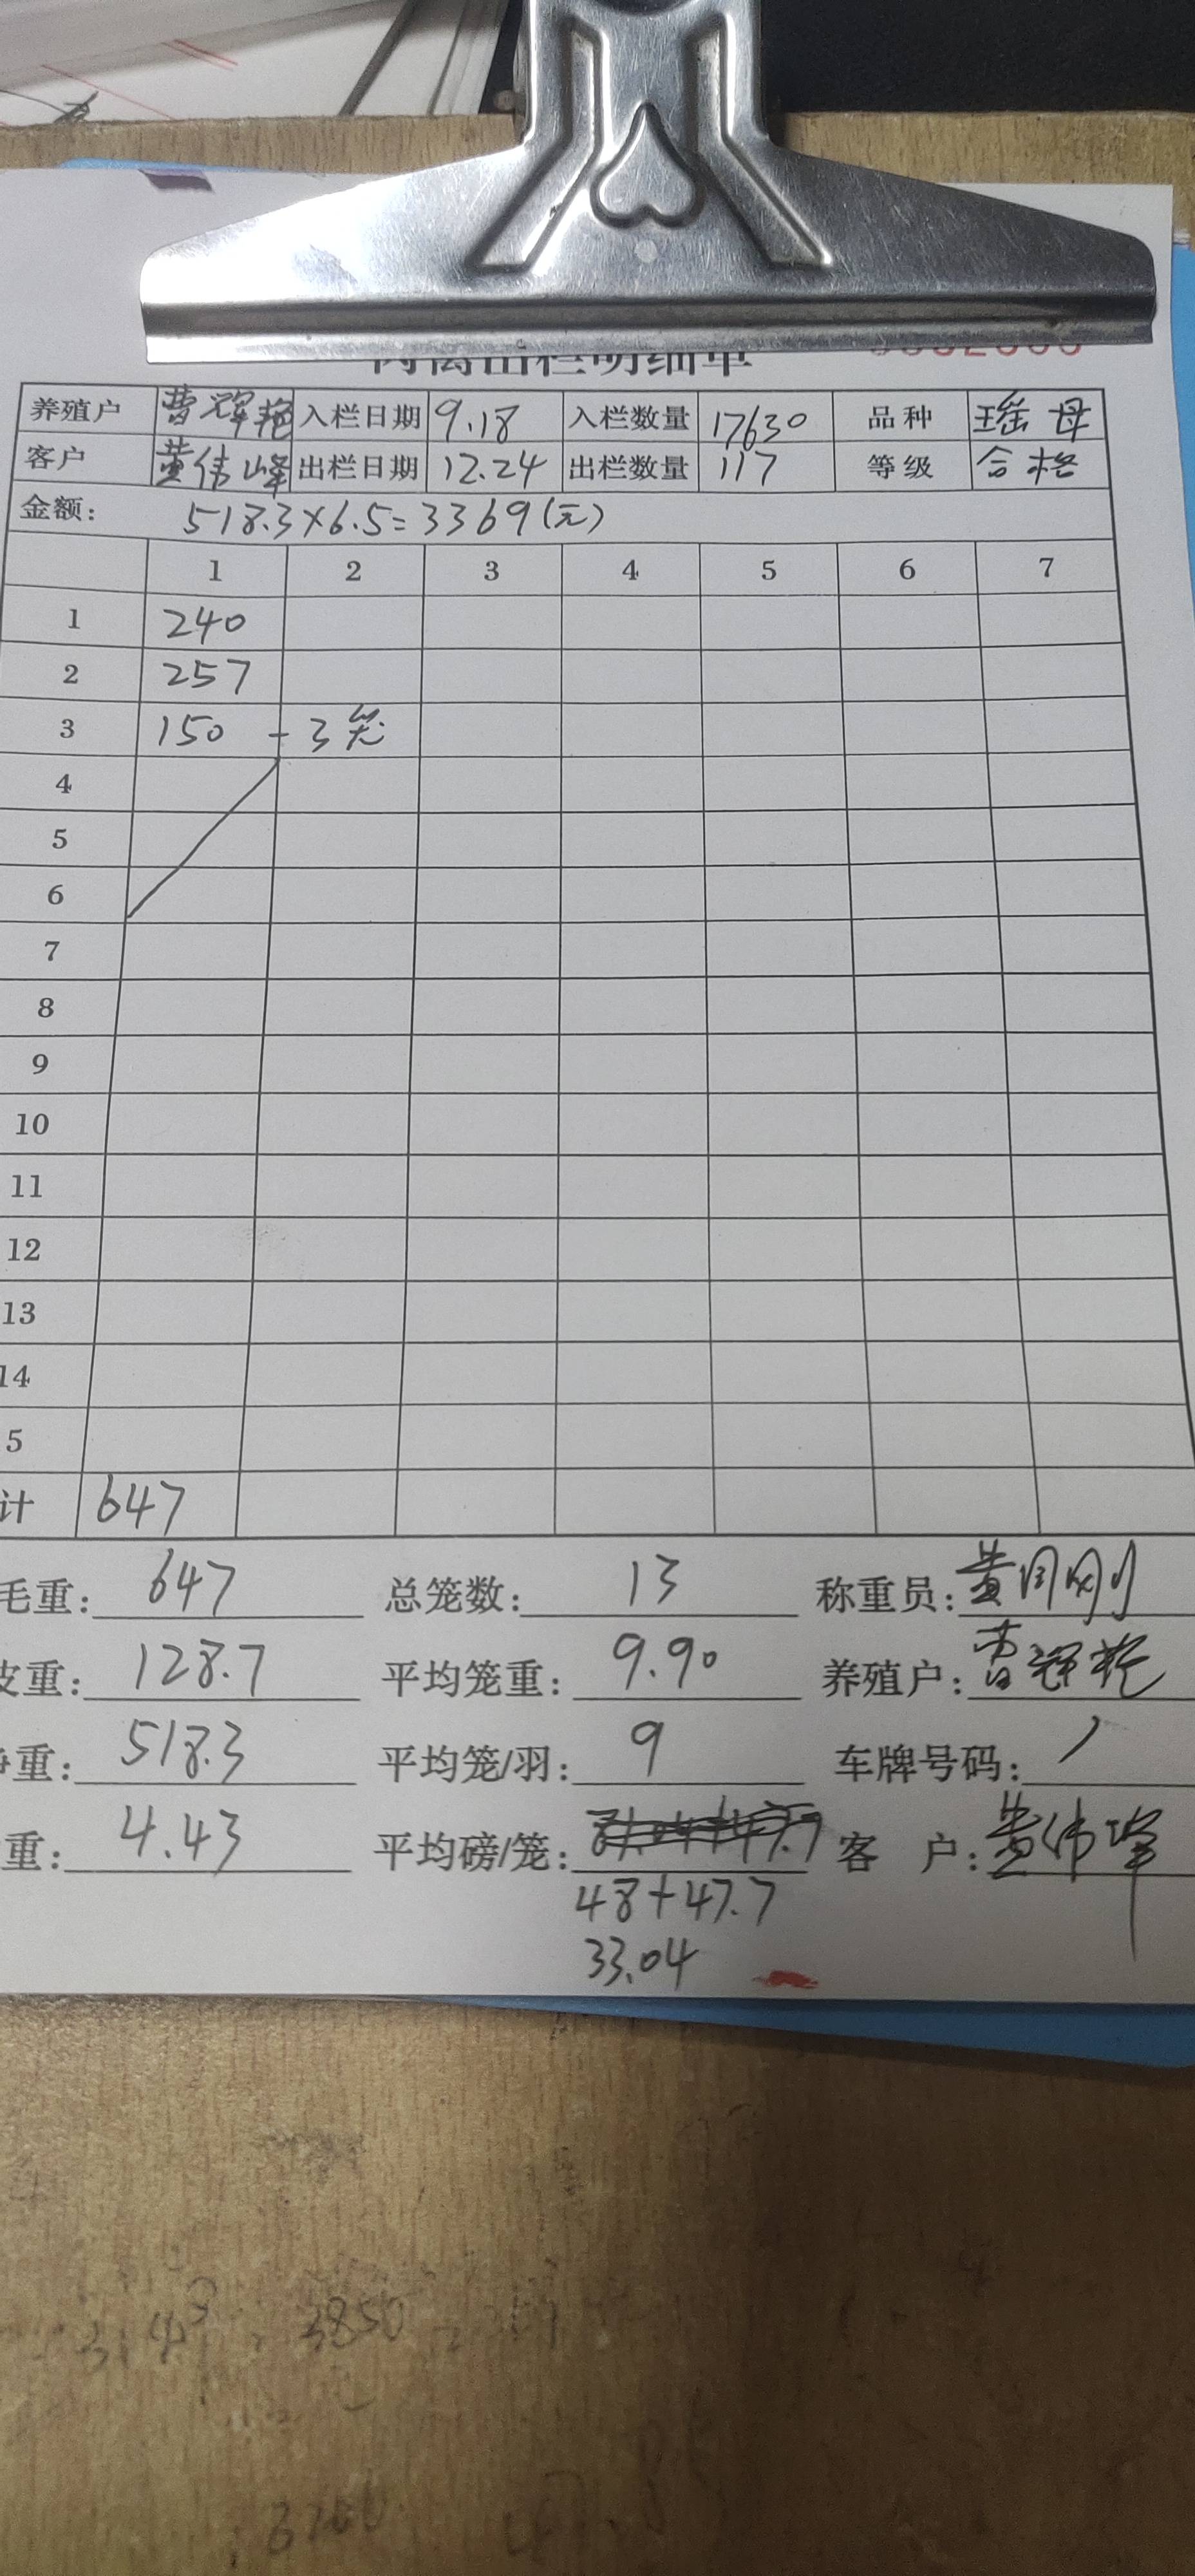 肉禽出栏明细单
养殖户 曹辉艳 入栏日期 9.18 入栏数量 17630 品种 瑶母
客户 黄伟峰 出栏日期 12.24 出栏数量 117 等级 合格
金额: 518.3×6.5=3369(元)
1 2 3 4 5 6 7
1 240
2 257
3 150 - 3笼
4
5
6
7
8
9
10
11
12
13
14
5
计 647
毛重: 647 总笼数: 13 称重员: 黄周刚
皮重: 128.7 平均笼重: 9.90 养殖户: 曹辉艳
净重: 518.3 平均笼/羽: 9 车牌号码: /
重: 4.43 平均磅/笼: 客 户: 黄伟峰
48+47.7
33.04
3850